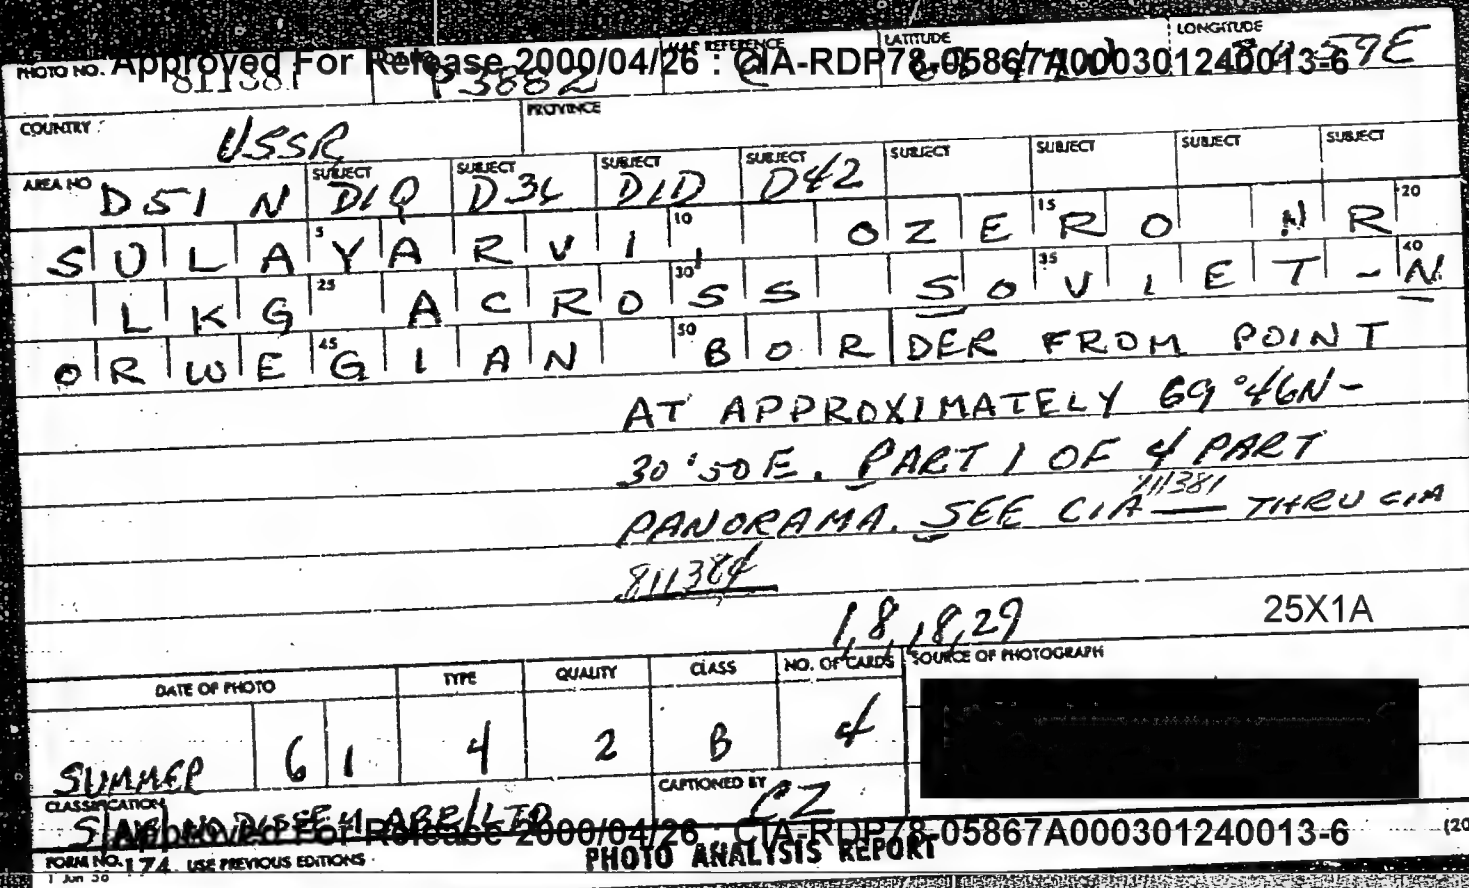 Approved For Release 2000/04/26 : CIA-RDP78-05867A000301240013-6
PHOTO NO. 811381 P3882 MAP REFERENCE LATITUDE LONGITUDE
COUNTRY USSR PROVINCE
AREA NO D51 N SUBJECT D1Q SUBJECT D3L SUBJECT D1D SUBJECT D42 SUBJECT SUBJECT SUBJECT SUBJECT
SULAYARVI, OZERO NR
LKG ACROSS SOVIET-N
ORWEGIAN BORDER FROM POINT
AT APPROXIMATELY 69°46N-
30°50E. PART 1 OF 4 PART
PANORAMA. SEE CIA 811381 THRU CIA
811384
1,8,18,29 25X1A
DATE OF PHOTO TYPE QUALITY CLASS NO. OF CARDS SOURCE OF PHOTOGRAPH
SUMMER 61 4 2 B 4
CLASSIFICATION CAPTIONED BY CZ
S NO DISSEM ABR/LTD
Approved For Release 2000/04/26 : CIA-RDP78-05867A000301240013-6
FORM NO. 174 USE PREVIOUS EDITIONS PHOTO ANALYSIS REPORT (20
1 Jun 50